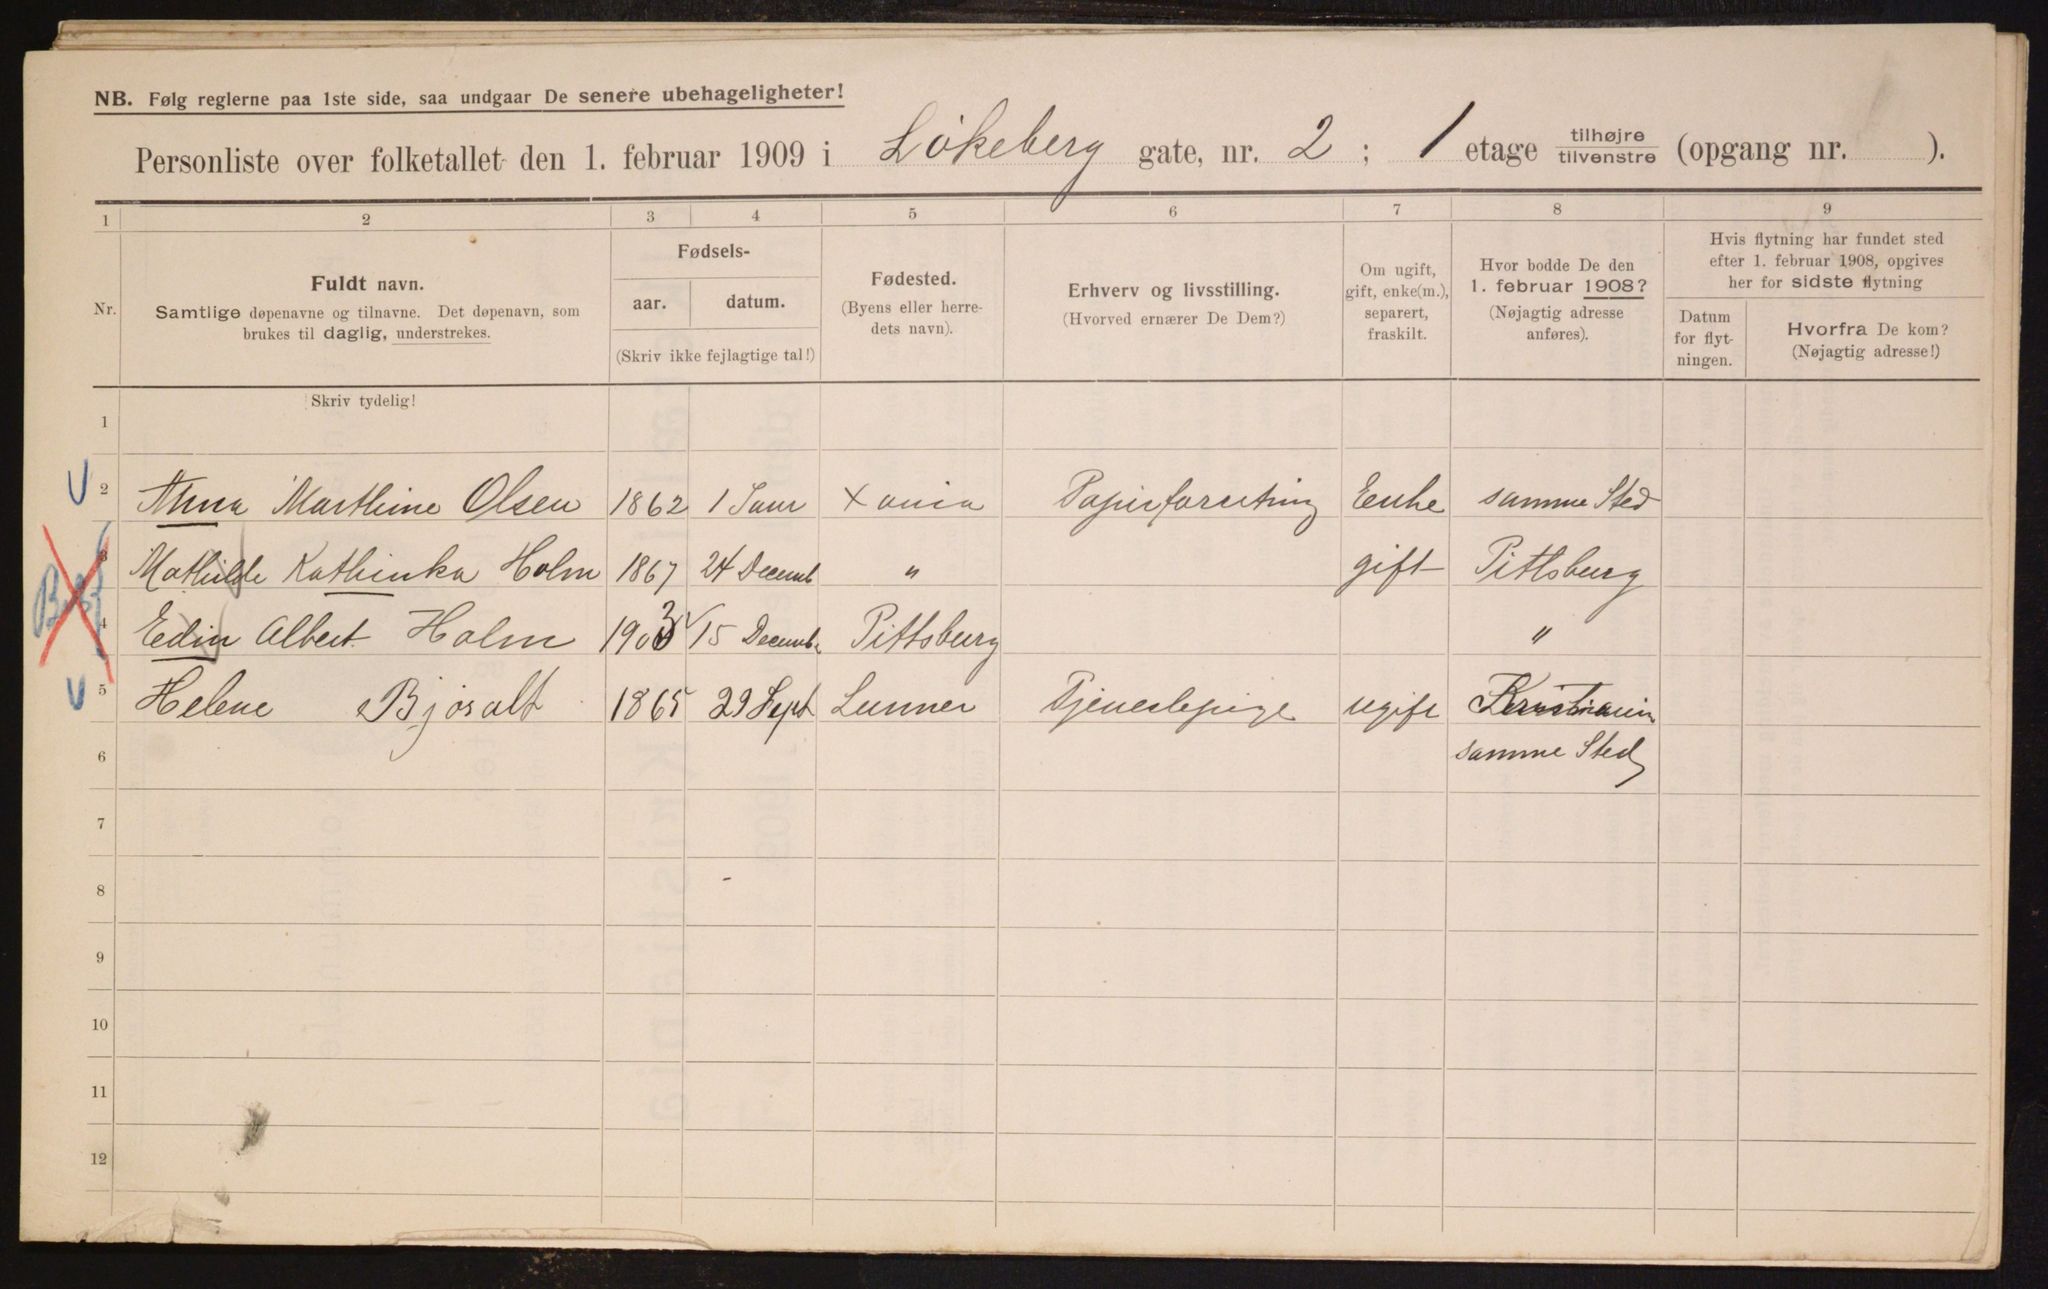 NB. Følg reglerne paa 1ste side, saa undgaar De senere ubehageligheter!
Personliste over folketallet den 1. februar 1909 i Lökeberg gate, nr. 2 ; 1 etage tilhøjre/tilvenstre (opgang nr. ).
1 2 3 4 5 6 7 8 9
Nr.
Fuldt navn.
Samtlige døpenavne og tilnavne. Det døpenavn, som
brukes til daglig, understrekes.
Fødsels-
aar. datum.
(Skriv ikke fejlagtige tal!)
Fødested.
(Byens eller herre-
dets navn).
Erhverv og livsstilling.
(Hvorved ernærer De Dem?)
Om ugift,
gift, enke(m.),
separert,
fraskilt.
Hvor bodde De den
1. februar 1908?
(Nøjagtig adresse
anføres).
Hvis flytning har fundet sted
efter 1. februar 1908, opgives
her for sidste flytning
Datum
for flyt-
ningen.
Hvorfra De kom?
(Nøjagtig adresse!)
Skriv tydelig!
1
2 Anna Marthine Olsen 1862 1 Janr Xania Papirforretning Enke samme Sted
3 Mathilde Kathinka Holm 1867 24 Decemb " gift Pittsburg
4 Edin Albert Holm 1903 15 Decemb. Pittsburg "
5 Helene Bjøralt 1865 29 Sept Lunner Tjenestepige ugift Kristiania
6 samme Sted
7
8
9
10
11
12